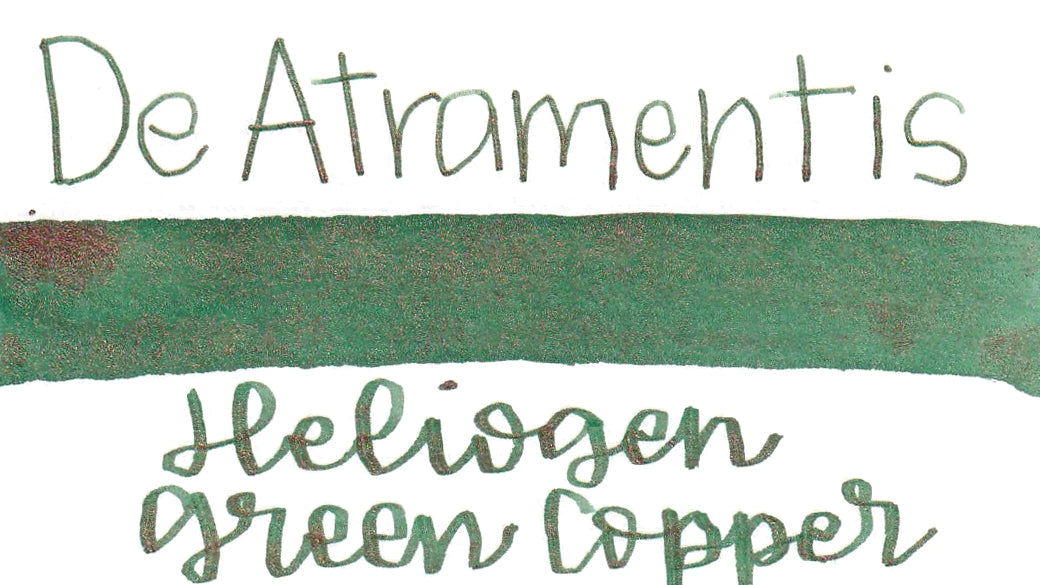 De Atramentis
Heliogen
Green Copper